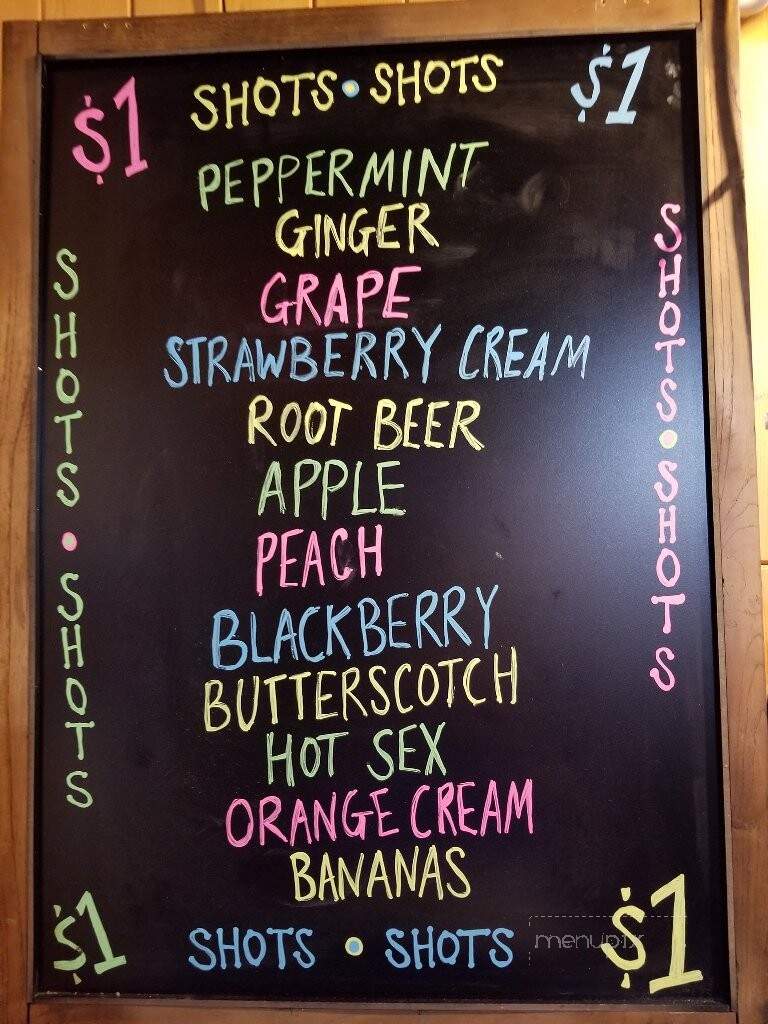 $1 SHOTS • SHOTS $1
PEPPERMINT
GINGER
GRAPE
STRAWBERRY CREAM
ROOT BEER
APPLE
PEACH
BLACKBERRY
BUTTERSCOTCH
HOT SEX
ORANGE CREAM
BANANAS
SHOTS • SHOTS
SHOTS • SHOTS
$1 SHOTS • SHOTS $1
menupix